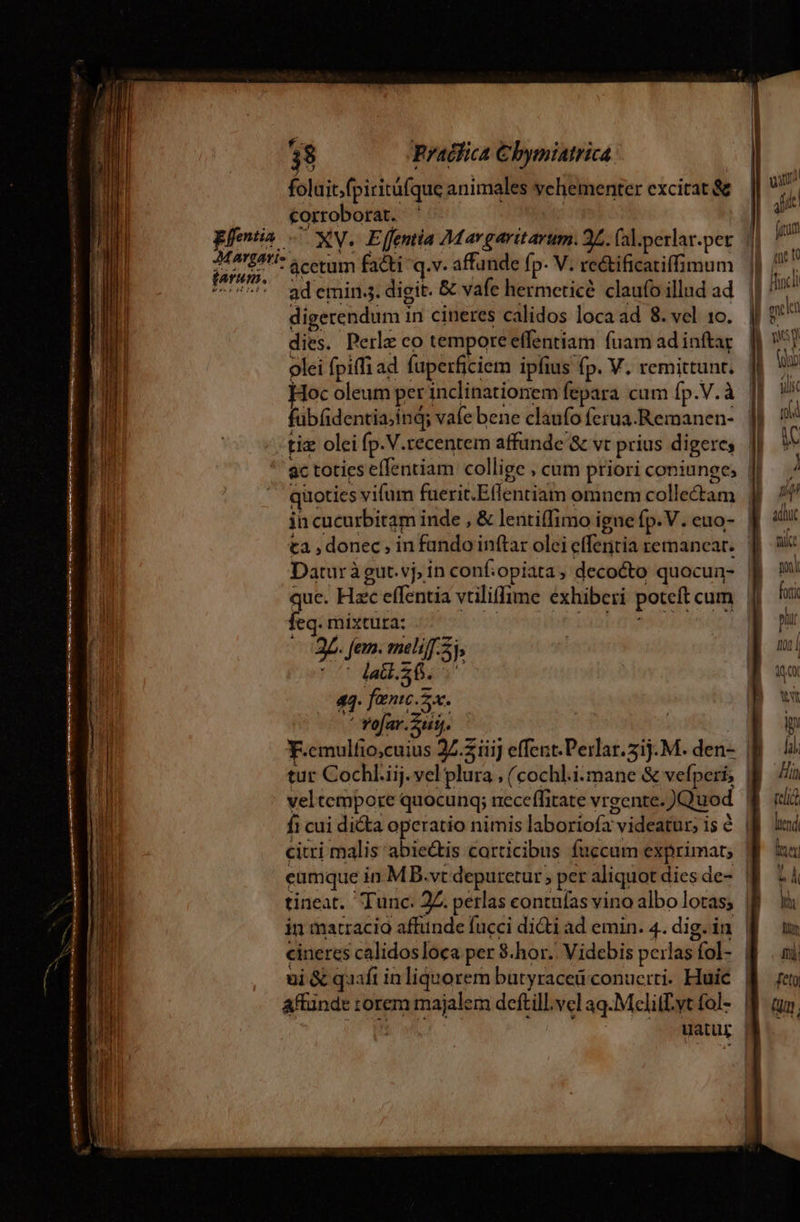 38 Practica Chymiatrica
soluit, spiritúsque animales vehementer excitat &
corroborat.
Essentia Margaritarum.
XV. Essentia Margaritarum. ℞. sal. perlar. per
acetum facti q.v. affunde sp. V. rectificatissimum
ad emin. 3. digit. & vase hermeticè clauso illud ad
digerendum in cineres calidos loca ad 8. vel 10.
dies. Perlæ eo tempore essentiam suam ad instar
olei spissi ad superficiem ipsius sp. V. remittunt.
Hoc oleum per inclinationem separa cum sp. V. à
subsidentia, inq; vase bene clauso serua. Remanen-
tiæ olei sp. V. recentem affunde & vt prius digere,
ac toties essentiam collige, cum priori coniunge,
quoties visum fuerit. Essentiam omnem collectam
in cucurbitam inde, & lentissimo igne sp. V. euo-
ca, donec, in fundo instar olei essentia remaneat.
Datur à gut. vj, in cons. opiata, decocto quocun-
que. Hæc essentia vtilissime exhiberi potest cum
seq. mixtura:
℞. sem. meliss. ʒj,
lact. ʒß.
aq. fœnic. ℥x.
rosar. ℥iiij.
F. emulsio, cuius ℞. ℥iiij essent. Perlar. ʒij. M. den-
tur Cochl. iij. vel plura, (cochl. i. mane & vesperi,
vel tempore quocunq; necessitate vrgente.) Quod
si cui dicta operatio nimis laboriosa videatur, is è
citri malis abiectis corticibus succum exprimat,
eumque in MB. vt depuretur, per aliquot dies de-
tineat. Tunc. ℞. perlas contusas vino albo lotas,
in matracio affunde succi dicti ad emin. 4. dig. in
cineres calidos loca per 8. hor. Videbis perlas sol-
ui & quasi in liquorem butyraceū conuerti. Huic
affunde rorem majalem destill. vel aq. Meliss. vt sol-
uatur